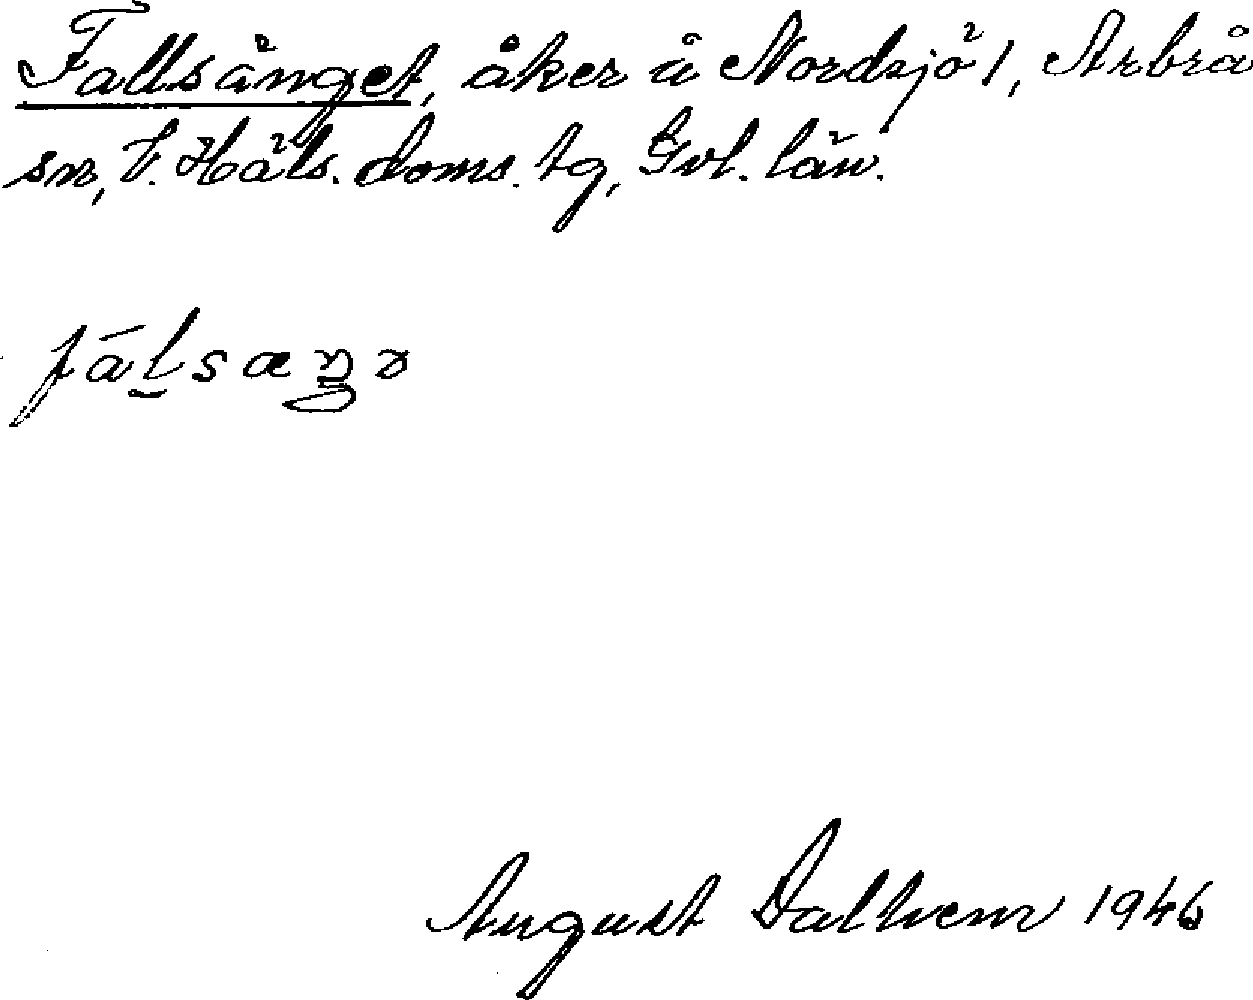 Fallsänget, åker å Nordsjö 1, Arbrå
sn, V. Häls. doms. tg, Gvl. län.
fálsæŋə
August Dalhem 1946